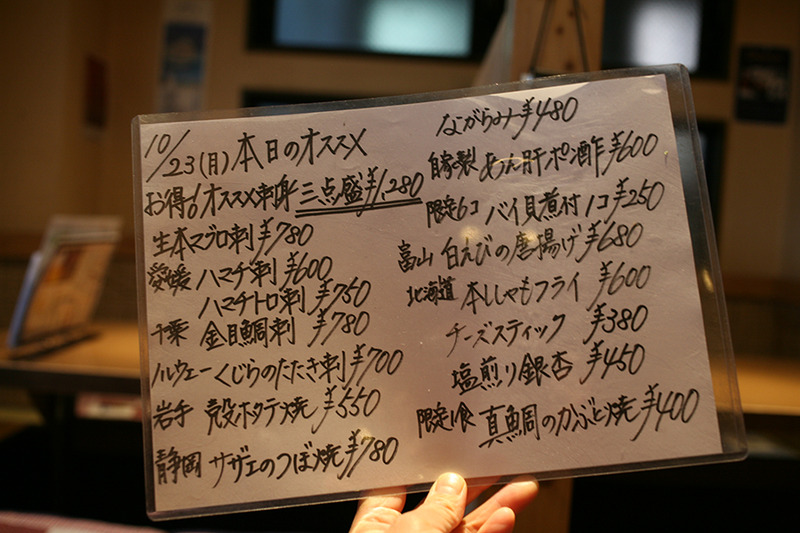 10/23(月)本日のオススメ
お得!オススメ刺身三点盛¥1,280
生本マグロ刺¥780
愛媛 ハマチ刺 ¥600
ハマチトロ刺 ¥750
千葉 金目鯛刺 ¥780
ノルウェーくじらのたたき刺¥700
岩手 殻ホタテ焼 ¥550
静岡 サザエのつぼ焼¥780
ながらみ¥480
自家製 あん肝ポン酢¥600
限定6コ バイ貝煮付 1コ¥250
富山 白えびの唐揚げ¥680
北海道 本ししゃもフライ ¥600
チーズスティック ¥380
塩煎り銀杏 ¥450
限定1食 真鯛のかぶと焼¥400